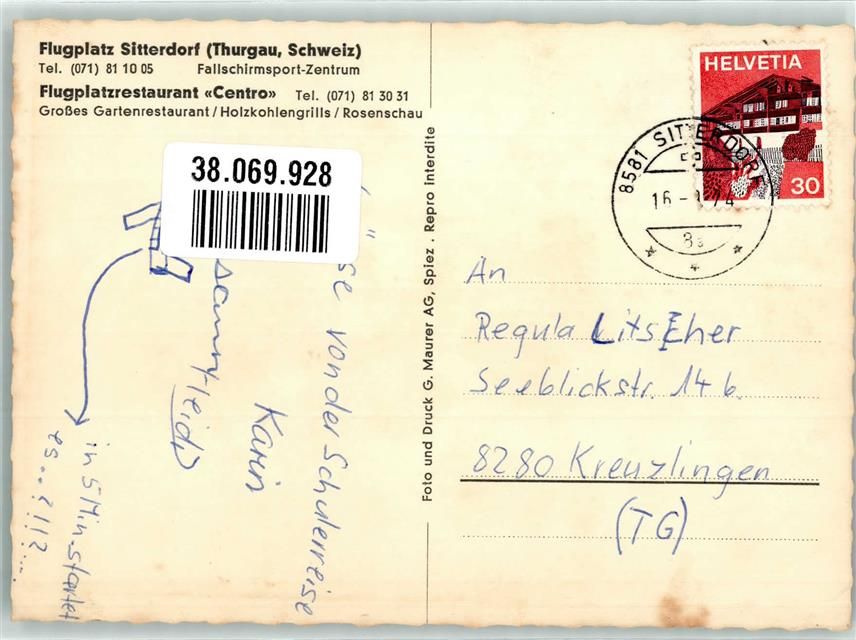 Flugplatz Sitterdorf (Thurgau, Schweiz)
Tel. (071) 81 10 05 Fallschirmsport-Zentrum
Flugplatzrestaurant «Centro» Tel. (071) 81 30 31
Großes Gartenrestaurant / Holzkohlengrills / Rosenschau
38.069.928
von der Schulerreise
Karin
Heidi
in 5 Min. startet
es...!!!?...
Foto und Druck G. Maurer AG, Spiez . Repro interdite
HELVETIA
30
8581 SITTERDORF
16
74
An
Regula LitsEher
Seeblickstr. 14 b.
8280 Kreuzlingen
(TG)